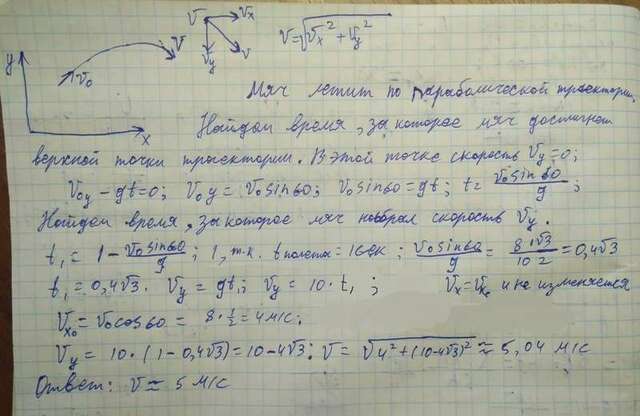 V Vx V = √(Vx² + Vy²)
y V Vy V
V₀
x
Мяч летит по параболической траектории.
Найдем время, за которое мяч достигнет
верхней точки траектории. В этой точке скорость Vy=0;
V₀y - gt=0; V₀y = V₀sin60; V₀sin60=gt; t= V₀sin60/g;
Найдем время, за которое мяч набрал скорость Vy.
t₁ = 1 - V₀sin60/g; 1, т.к. t полета=1сек; V₀sin60/g = 8·√3/10·2 = 0,4√3
t₁ = 0,4√3. Vy = gt₁; Vy = 10·t₁; Vx=Vx₀ и не изменяется
Vx₀ = V₀cos60 = 8·½ = 4м/с;
Vy = 10·(1-0,4√3) = 10-4√3; V = √(4²+(10-4√3)²) ≈ 5,04 м/с
Ответ: V ≈ 5 м/с